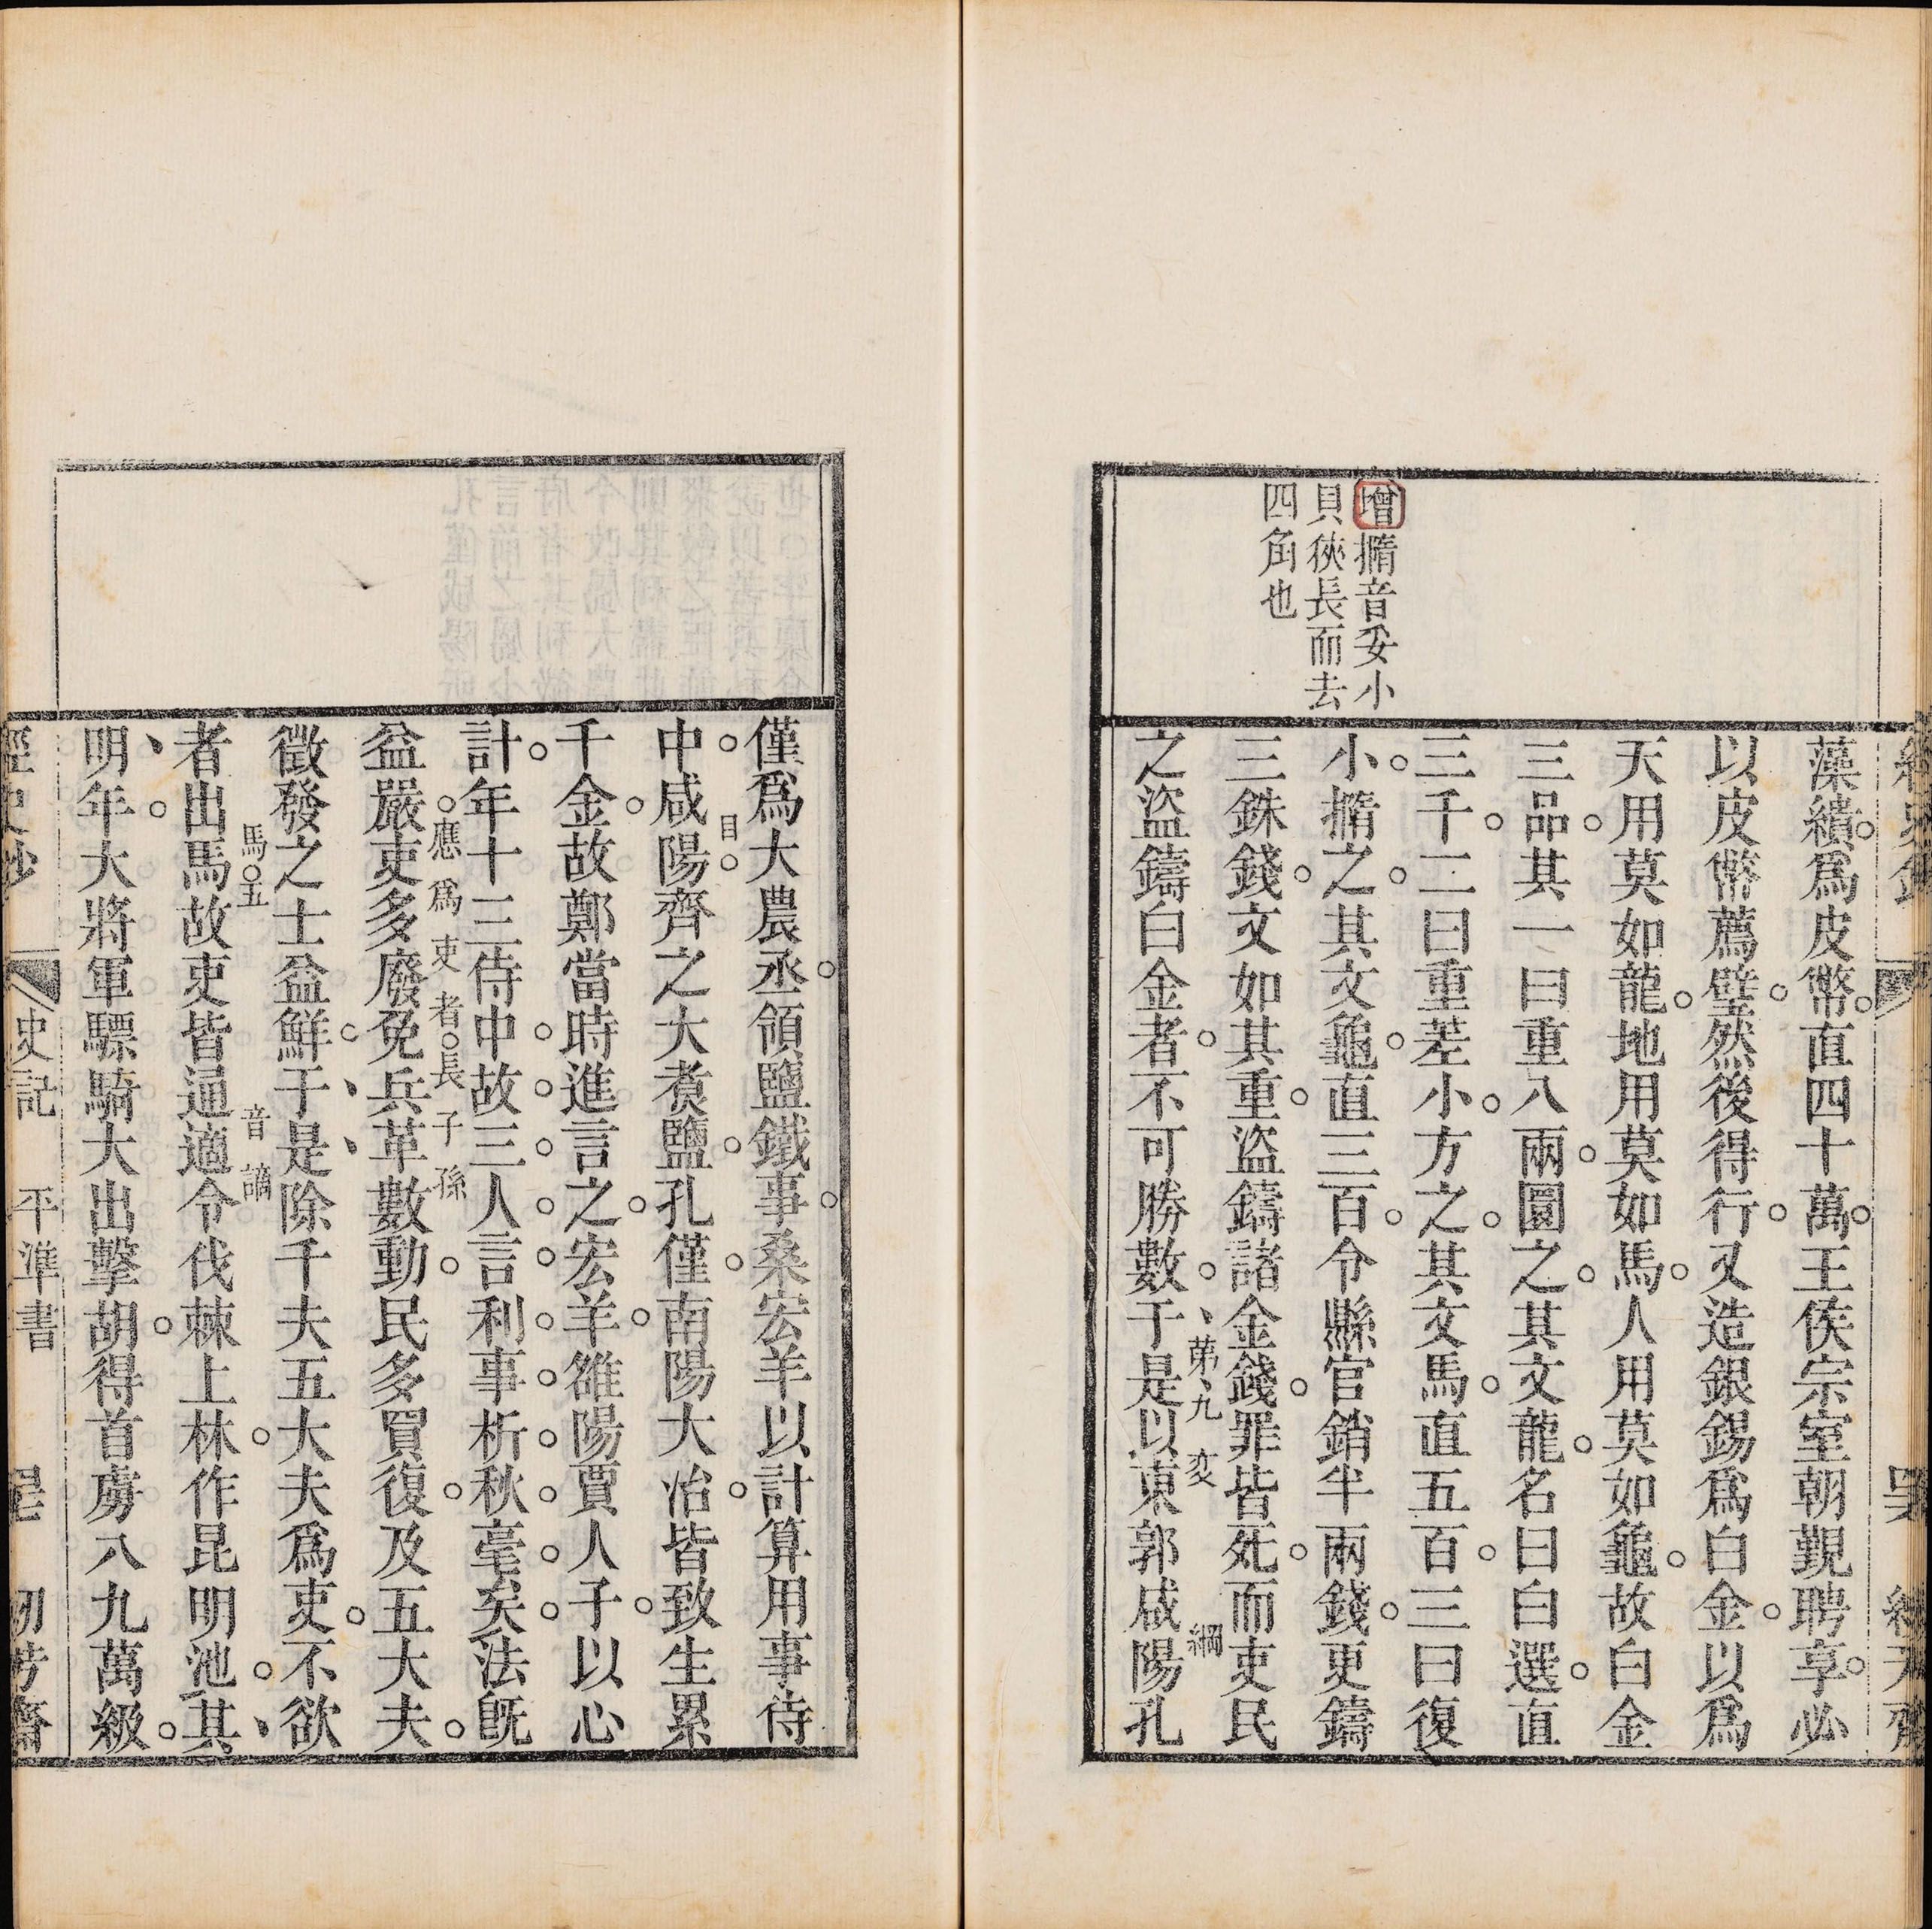 增 撱音妥小
貝狹長而去
四角也
藻繢爲皮幣直四十萬王侯宗室朝覲聘享必
以皮幣薦璧然後得行又造銀錫爲白金以爲
天用莫如龍地用莫如馬人用莫如龜故白金
三品其一曰重八兩圜之其文龍名曰白選直
三千二曰重差小方之其文馬直五百三曰復
小撱之其文龜直三百令縣官銷半兩錢更鑄
三銖錢文如其重盜鑄諸金錢罪皆死而吏民
第九変 綱
之盜鑄白金者不可勝數于是以東郭咸陽孔
僅爲大農丞領鹽鐵事桑宏羊以計算用事侍
目
中咸陽齊之大煑鹽孔僅南陽大冶皆致生累
千金故鄭當時進言之宏羊雒陽賈人子以心
計年十三侍中故三人言利事析秋毫矣法旣
應爲吏者長子孫
益嚴吏多廢免兵革數動民多買復及五大夫
徵發之士益鮮于是除千夫五大夫爲吏不欲
馬五 音謫
者出馬故吏皆逼適令伐棘上林作昆明池其
明年大將軍驃騎大出擊胡得首虜八九萬級
史記 平準書